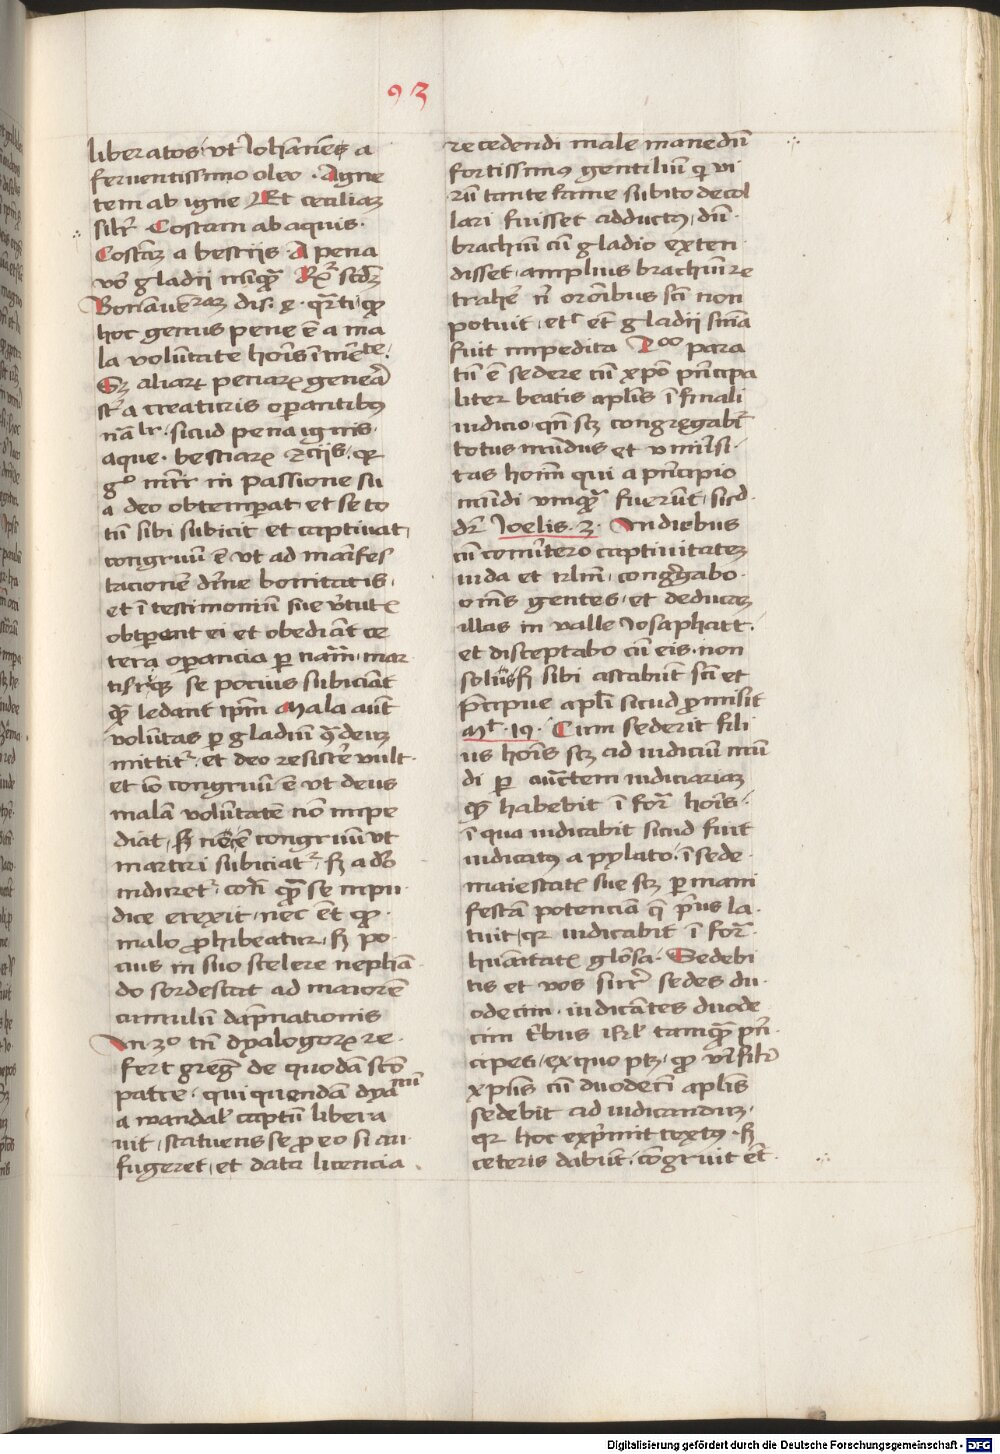 93
liberatos, vt Johānē a
feruentissimo oleo . Agne
tem ab igne Et ceciliaꝫ
silr̄ Costam ab aquis .
Costāꝫ a bestijs A pena
vō gladii nūqᷓ Rn̄ scdꝫ
Bonauen dis. qr̄ti, ꝙ
hoc genus pene ē a ma
la volūtate hoīs ī mēte.
Sꝫ aliarꝝ penarꝝ genera
st̄ a creaturis oꝑantibꝰ
nālr . sicud pena ignis .
aque . bestiarꝝ ⁊ciis . qr
gͦ mr̄ir in passione su
a deo obtemꝑat et se to
tū sibi subicit et captiuat,
congruū ē vt ad manifes
tacionē diuine bonitatis .
et ī testimoniū sue v̄tutꝭ
obtꝑent ei et obediāt ce
tera oꝑancia ꝑ nam̄ . mar
tirꝫ se pocius subiciāt
qᷓ ledant ip̄m Mala aūt
volūtas ꝑ gladiū qᷓ deꝰ
mittit᷑ . et deo resistē vult .
et iō congruū ē vt deus
malā volūtatē nō impe
diat , sꝫ nec ē congruū vt
martiri subiciat᷑ . sꝫ a dō
induret᷑ . cōn̄ qᷓ se inpu
dice erexit, nec ēt ꝙ .
malo ꝓhibeatur, sꝫ po
cius in suo scelere nephā
do sordescat ad maiorē
cumulū dāpnationis
In 3ͦ tn̄ dyalogorꝝ re
fert greḡ de quodā scō
patre . qui quendā dyacnū
a wandal̄ captū libera
uit , statuens se ꝓ eo si au
fugeret , et data licencia
recedendi male manedū
fortissimꝰ gentiliū qui vi
rū tante fame subito decol
lari fuisset adductꝰ, dū
brachiū cū gladio exten
disset, amplius brachiū re
trahe nͥ orōnibus scī non
potuit, et᷑ ēt gladii sn̄ia
fuit impedita 2ͦ para
tū ē sedere cū xp̄o pͥncipa
liter beatis aplīs ī finali
iudicio, qn̄ scꝫ congregabit᷑
totus mūdus et vniūsi
tas hoīm qui a pͥncipio
mūdi vnqᷓ fuerūt, sicd
dr̄ Joelis . 3 . In diebus
cū conūtero captiuitateꝫ
iuda et irl̄m , congͬgabo
om̄s gentes, et deducaꝫ
illas in valle Josaphatt .
et disceptabo cū eis . non
solū sꝫ sibi astabūt scī et
pͥcipue apl̄i sicud ꝓmisit
Mt . 19 . Cum sederit fili
us hoīs scꝫ ad iudiciū mū
di ꝑ auc̄tem iudiciariaꝫ
qᷓ habebit ī for̄ hoīs .
ī qua iudicabit sicud fuit
iudicatꝰ a pylato . ī sede
maiestatꝭ sue scꝫ ꝑ mani
festā potenciā q̄ pͥus la
tuit, qr iudicabit ī for̄
huāitatꝭ glōsa . Sedebi
tis et vos suꝑ sedes du
odecim . iudicātes duode
cim tͥbus isrl̄ tamqᷓ pͥn
cipes, ex quo ptꝫ, ꝙ vbi fili
xp̄us cū duodecī aplīs
sedebit ad iudicanduꝫ,
qr hoc expͥmit textꝰ . sꝫ
ceteris dabūt . congruit ēt
Digitalisierung gefördert durch die Deutsche Forschungsgemeinschaft - DFG